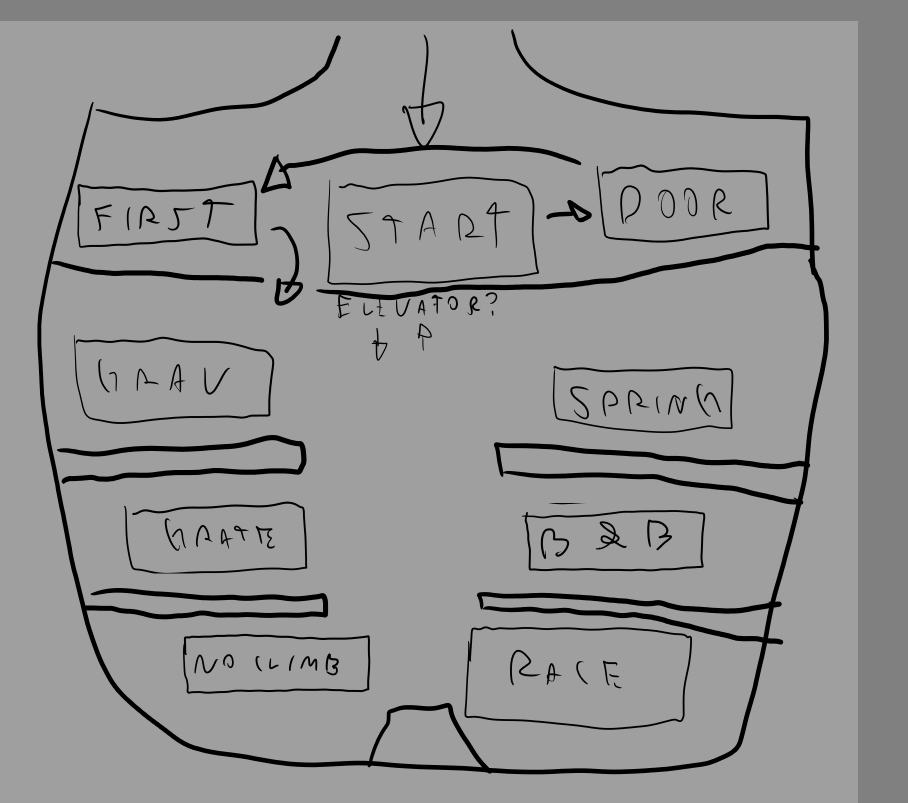 FIRST
START
DOOR
ELEVATOR?
GRAV
SPRING
GRATE
B & B
NO CLIMB
RACE